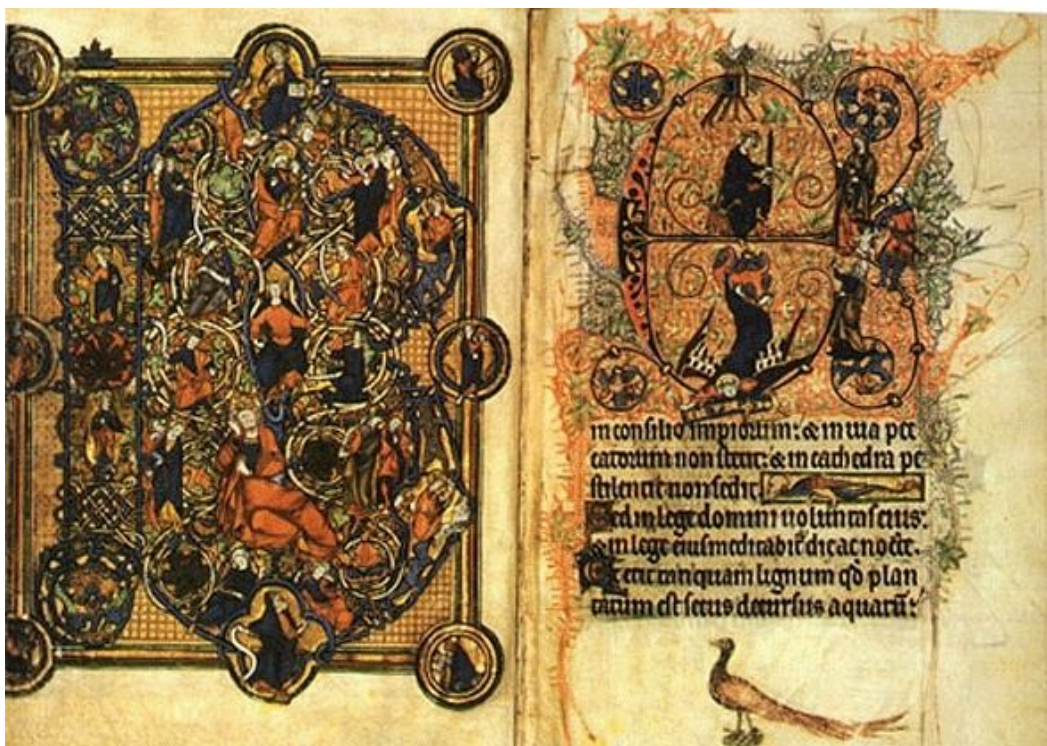 B
E
in consilio impiorum: & in uia pec
catorum non stetit: & in cathedra pe
stilentie non sedit.
Sed in lege domini uoluntas eius:
& in lege eius meditabit̃ die ac nocte.
Et erit tanquam lignum qd̃ plan
tatum est secus decursus aquarũ: